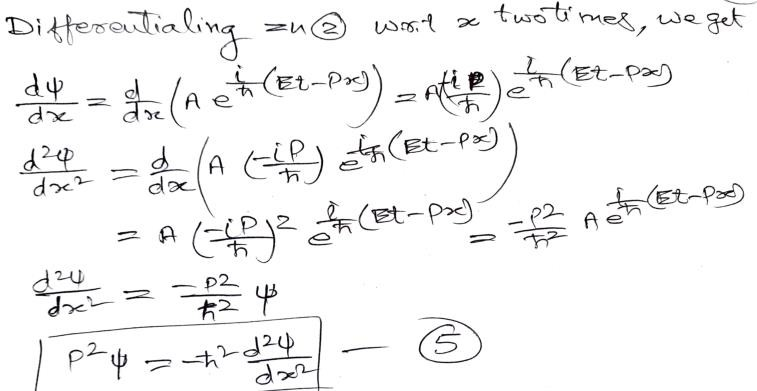 Differentialing =n ② w.r.t x two times, we get
dψ/dx = d/dx (A e^{i/ħ (Et-Px)}) = A(-iP/ħ) e^{i/ħ (Et-Px)}
d²ψ/dx² = d/dx (A (-iP/ħ) e^{i/ħ (Et-Px)})
= A (-iP/ħ)² e^{i/ħ (Et-Px)} = -P²/ħ² A e^{i/ħ (Et-Px)}
d²ψ/dx² = -P²/ħ² ψ
P²ψ = -ħ² d²ψ/dx² — ⑤